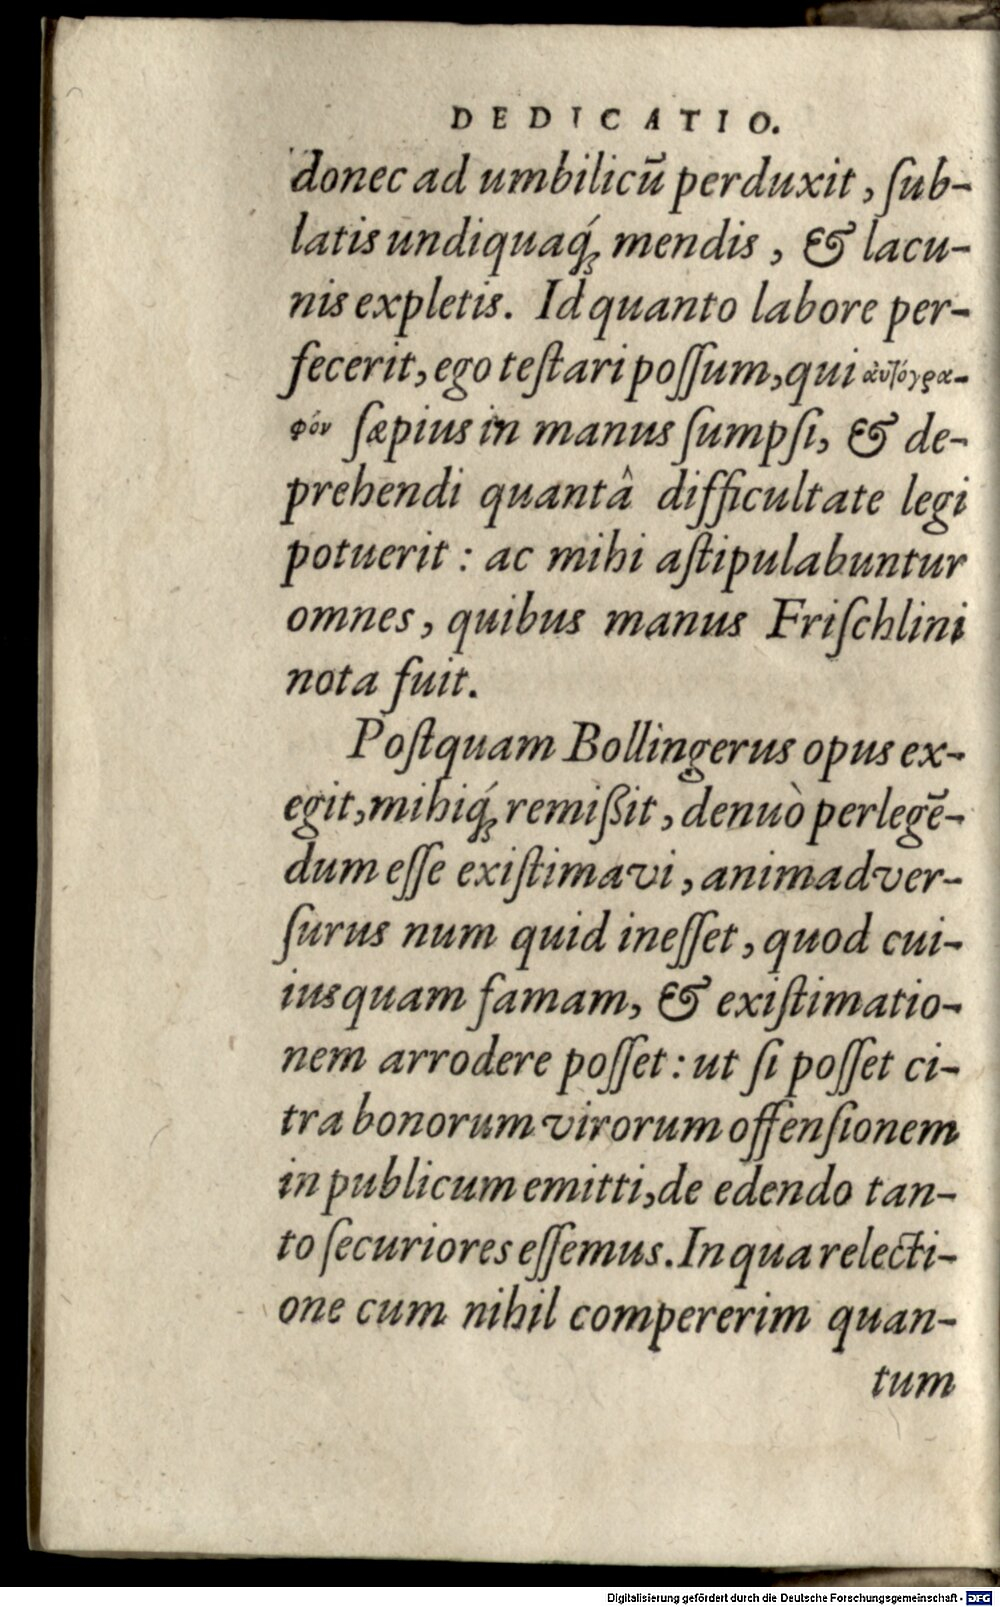 DEDICATIO.
donec ad umbilicū perduxit, ſub-
latis undiquaq́; mendis, & lacu-
nis expletis. Id quanto labore per-
fecerit, ego teſtari poſſum, qui αὐτόγρα-
φόν ſæpius in manus ſumpſi, & de-
prehendi quantâ difficultate legi
potuerit: ac mihi aſtipulabuntur
omnes, quibus manus Friſchlini
nota fuit.
Poſtquam Bollingerus opus ex-
egit, mihiq́; remißit, denuò perlegē-
dum eſſe exiſtimavi, animadver-
ſurus num quid ineſſet, quod cui-
iusquam famam, & exiſtimatio-
nem arrodere poſſet: ut ſi poſſet ci-
tra bonorum virorum offenſionem
in publicum emitti, de edendo tan-
to ſecuriores eſſemus. In qua relecti-
one cum nihil compererim quan-
tum
Digitalisierung gefördert durch die Deutsche Forschungsgemeinschaft - DFG